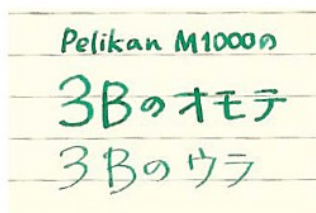 Pelikan M1000の
3Bのオモテ
3Bのウラ